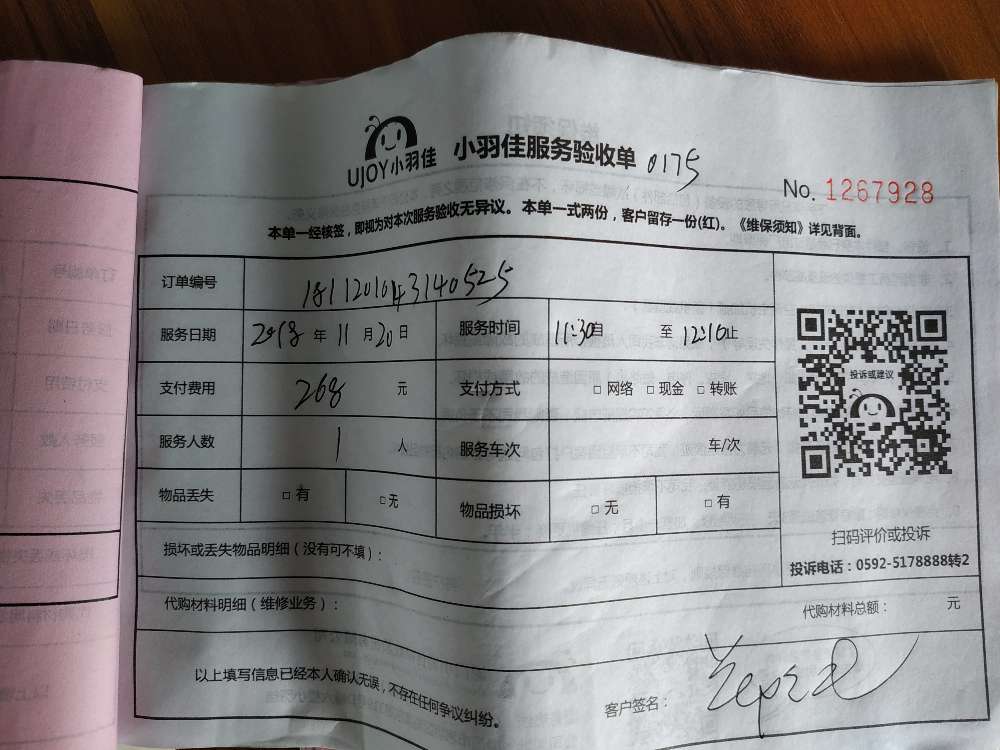 UJOY小羽佳 小羽佳服务验收单 0175
No. 1267928
本单一经核签，即视为对本次服务验收无异议。本单一式两份，客户留存一份(红)。《维保须知》详见背面。
订单编号
服务日期 2018 年 11 月 20 日 服务时间 11:30自 至 12:10止
支付费用 268 元 支付方式 □ 网络 □ 现金 □ 转账
服务人数 1 人 服务车次 车/次
物品丢失 □ 有 □ 无 物品损坏 □ 无 □ 有
投诉或建议
扫码评价或投诉
投诉电话：0592-5178888转2
损坏或丢失物品明细（没有可不填）：
代购材料明细（维修业务）： 代购材料总额： 元
以上填写信息已经本人确认无误，不存在任何争议纠纷。 客户签名：